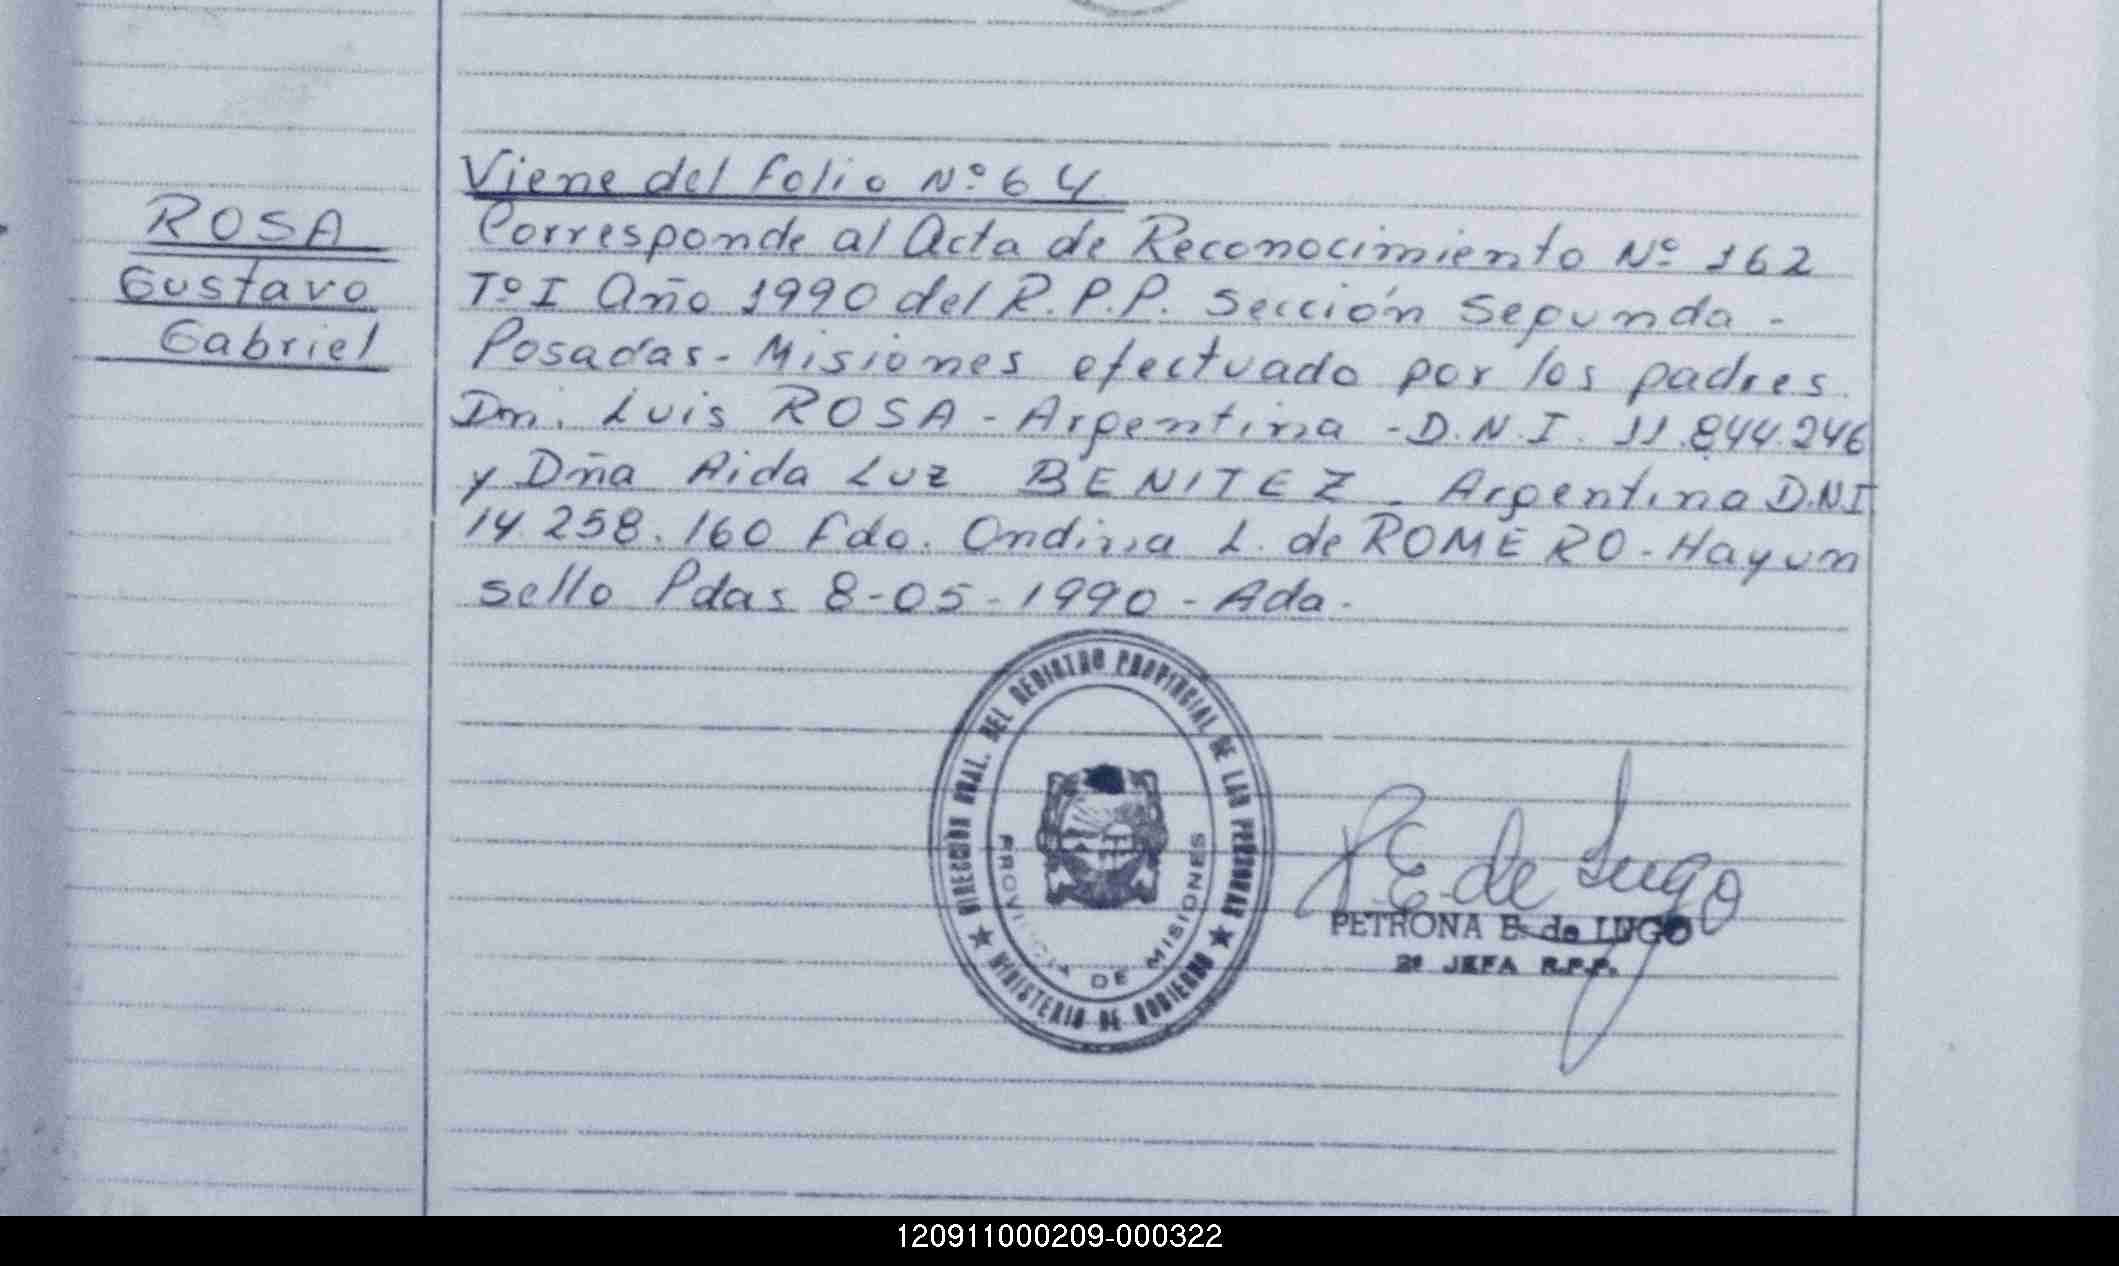 Viene del folio Nº 64
ROSA
Gustavo
Gabriel
Corresponde al Acta de Reconocimiento Nº 162
Tº I Año 1990 del R.P.P. Sección Segunda -
Posadas - Misiones efectuado por los padres
Dn. Luis ROSA - Argentina - D.N.I. 11.844.246
y Dña Aida Luz BENITEZ - Argentina D.N.I
14.258.160 Fdo. Ondina L. de ROMERO - Hay un
sello Pdas 8-05-1990 - Ada.
DIRECCION GRAL. DEL REGISTRO PROVINCIAL DE LAS PERSONAS
MINISTERIO DE GOBIERNO
PROVINCIA DE MISIONES
P E. de Lugo
PETRONA E. de LUGO
2º JEFA R.P.P.
120911000209-000322